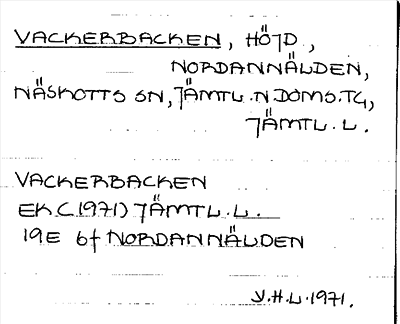 VACKERBACKEN, HÖJD,
NORDANNÄLDEN,
NÄSKOTTS SN, JÄMTL. N. DOMS. TG,
JÄMTL. L.
VACKERBACKEN
EK (1971) JÄMTL. L.
19E 6f NORDANNÄLDEN
V.H.L. 1971.